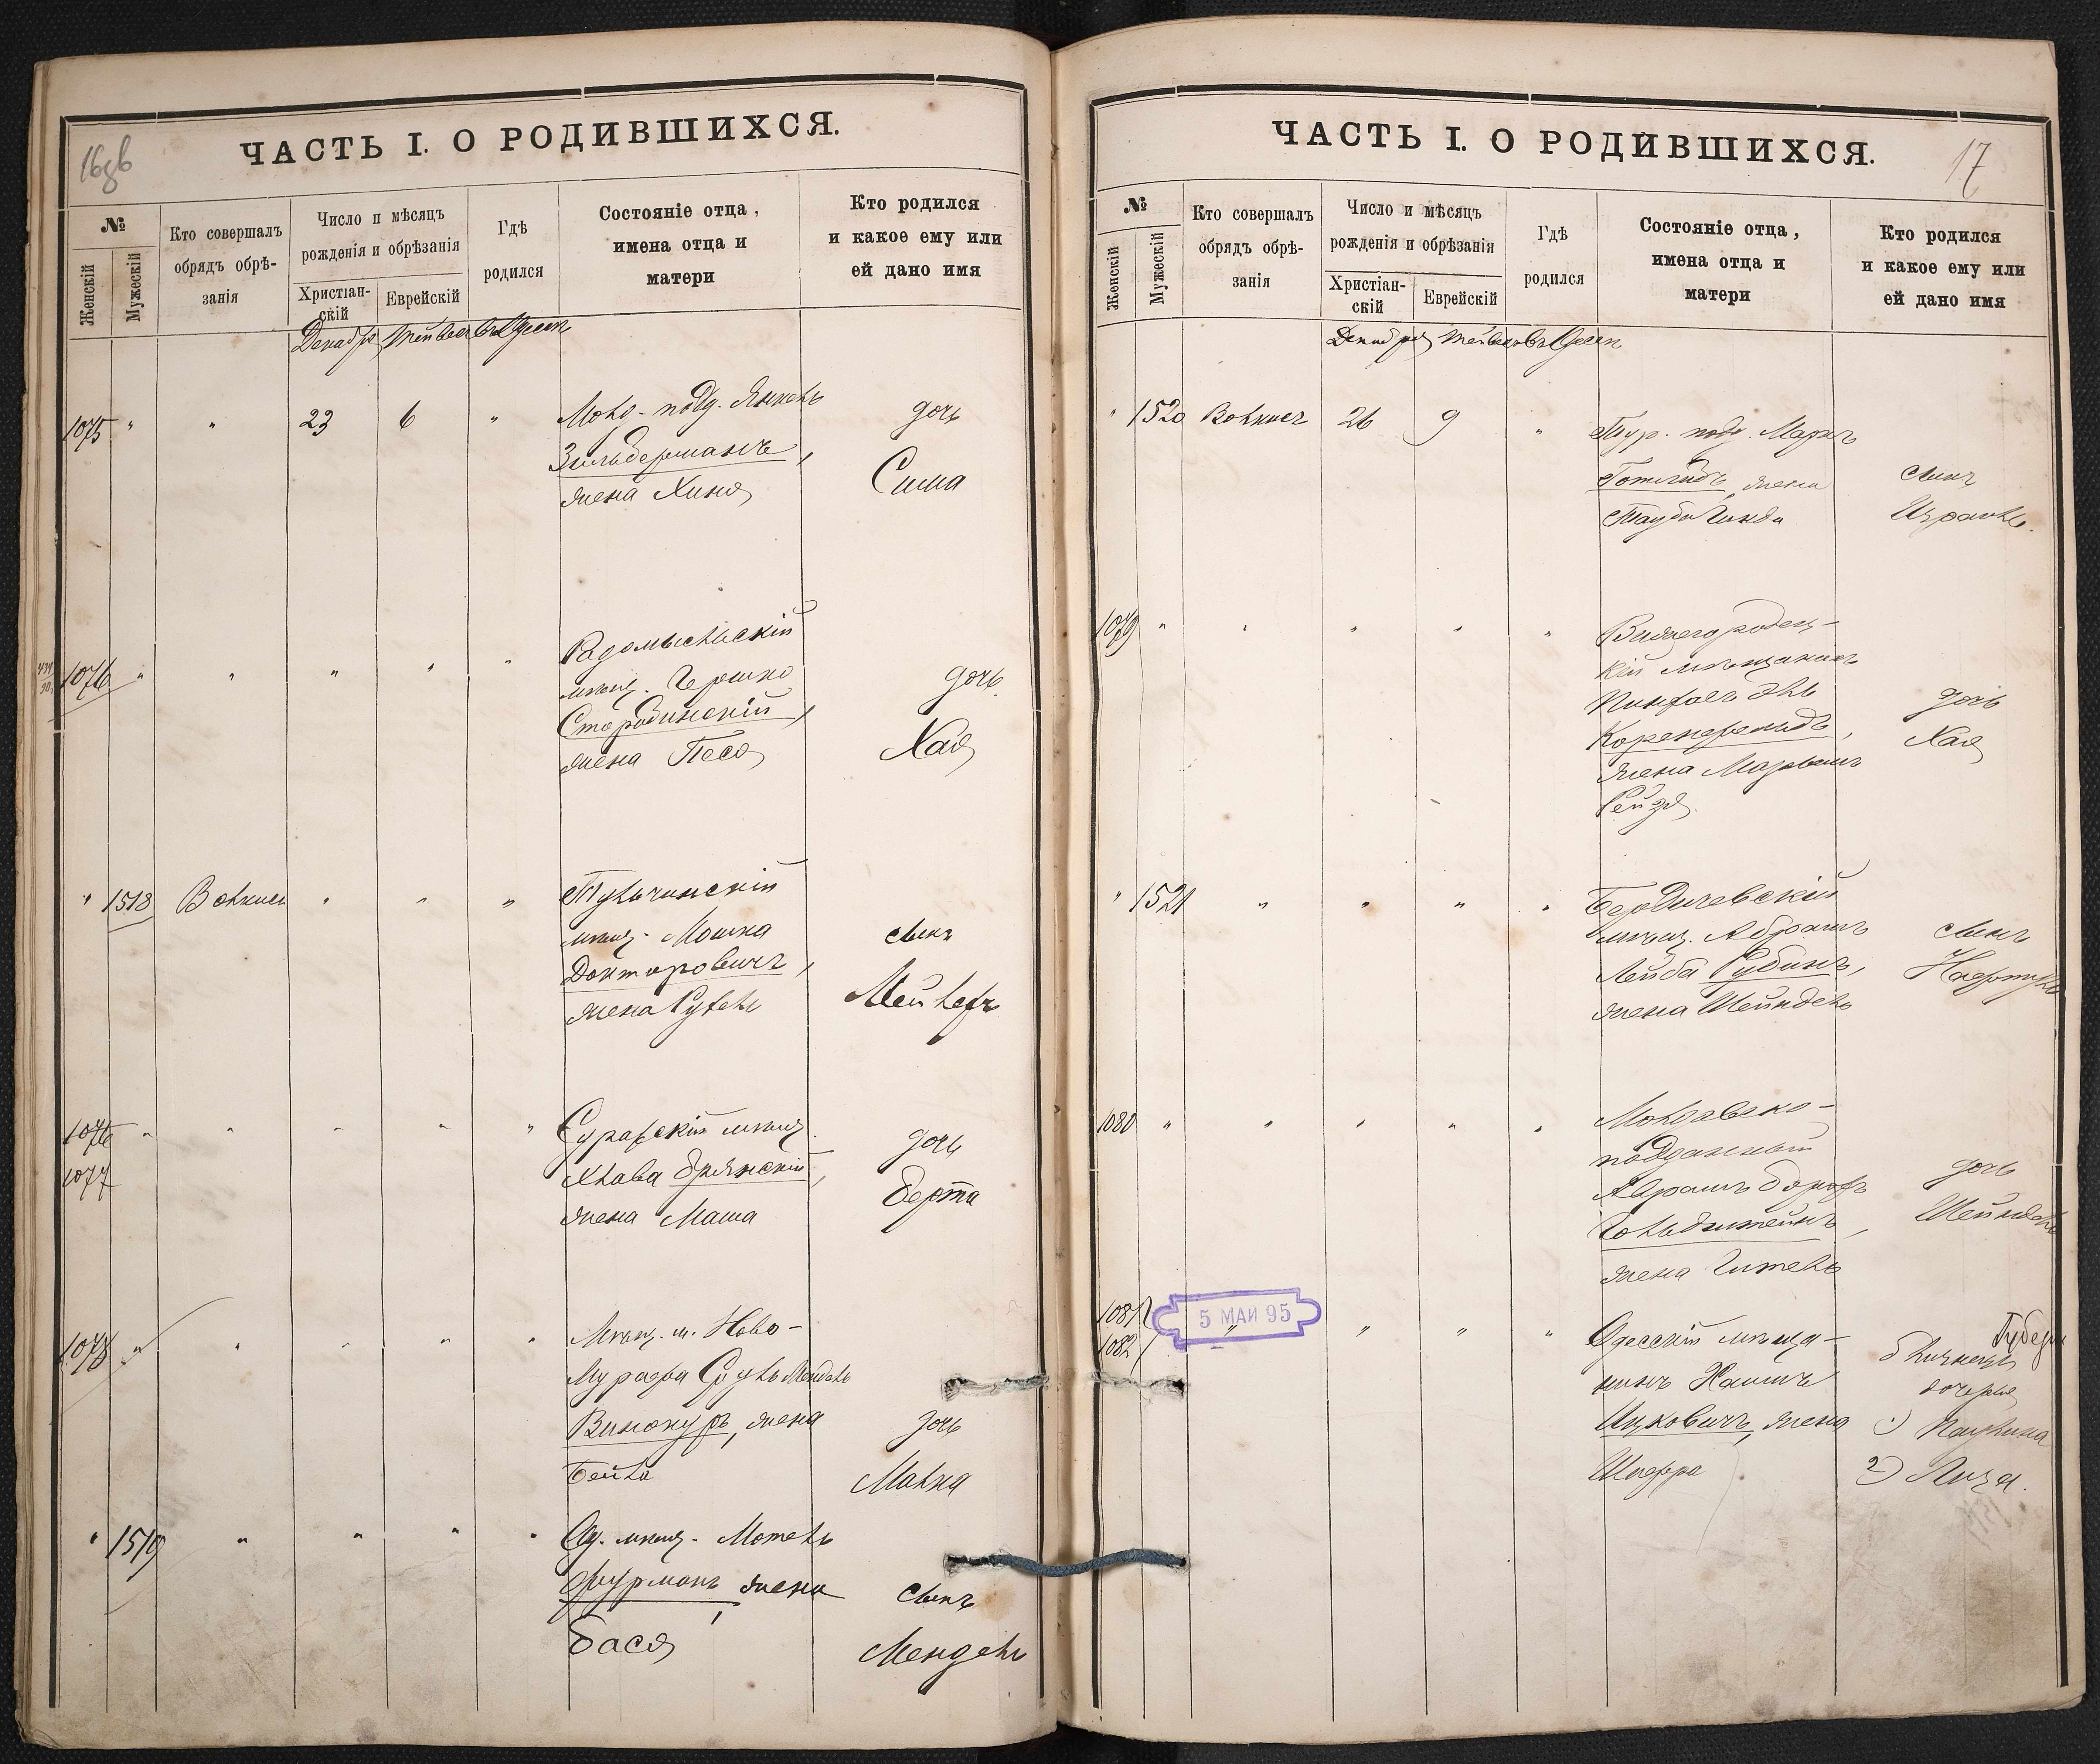 16об
ЧАСТЬ I. О РОДИВШИХСЯ.
№
Женскій
Мужескій
Кто совершалъ
обрядъ обрѣ-
занія
Число и мѣсяцъ
рожденія и обрѣзанія
Христіан-
скій
Еврейскій
Гдѣ
родился
Состояніе отца,
имена отца и
матери
Кто родился
и какое ему или
ей дано имя
Декабр. Тейвесъ въ Одессѣ
1075 " " 23 6 "
Молд-подд. Янкель
Зильберманъ,
жена Хиня
дочь
Сима
1076 " " " " "
Радомысльскій
мѣщ. Гершко
Стародинскій,
жена Песя
дочь
Хая
" 1518 Волкисъ " " "
Тульчинскій
мѣщ. Мошка
Докторовичъ,
жена Рухель
сынъ
Мейлехъ
1076 " " " " "
1077
Суражскій мѣщ.
Хлава Брянскій,
жена Маша
дочь
Берта
1078 " " " " "
Мѣщ. м. Ново-
Мурафа Сруль Мендель
Винокуръ, жена
Бейла
дочь
Малка
" 1519 " " " "
Од. мѣщ. Мотель
Фурманъ, жена
Бася
сынъ
Мендель
17
ЧАСТЬ I. О РОДИВШИХСЯ.
№
Женскій
Мужескій
Кто совершалъ
обрядъ обрѣ-
занія
Число и мѣсяцъ
рожденія и обрѣзанія
Христіан-
скій
Еврейскій
Гдѣ
родился
Состояніе отца,
имена отца и
матери
Кто родился
и какое ему или
ей дано имя
Декабря Тейвесъ въ Одессѣ
" 1520 Волкисъ 26 9 "
Тур. подд. Маркъ
Готлибъ, жена
Тауба Гинда
сынъ
Израиль.
1079 " " " " "
кій мѣщанинъ
жена Марьямъ
Рейзя
дочь
Хая
" 1521 " " " "
Бердичевскій
мѣщ. Абрамъ
Лейба Рубинъ,
жена Шейндель
сынъ
Нафтула
1080 " " " " "
Молдавско-
подданный
Абрамъ Борохъ
Гольдштейнъ,
жена Гитель
дочь
Шейндель
1081
1082
5 МАЙ 95
" " " "
Одесскій мѣща-
нинъ Хаимъ
Ицковичъ, жена
Шифра
близнецы
дочери
1) Паулина
2) Лиза.